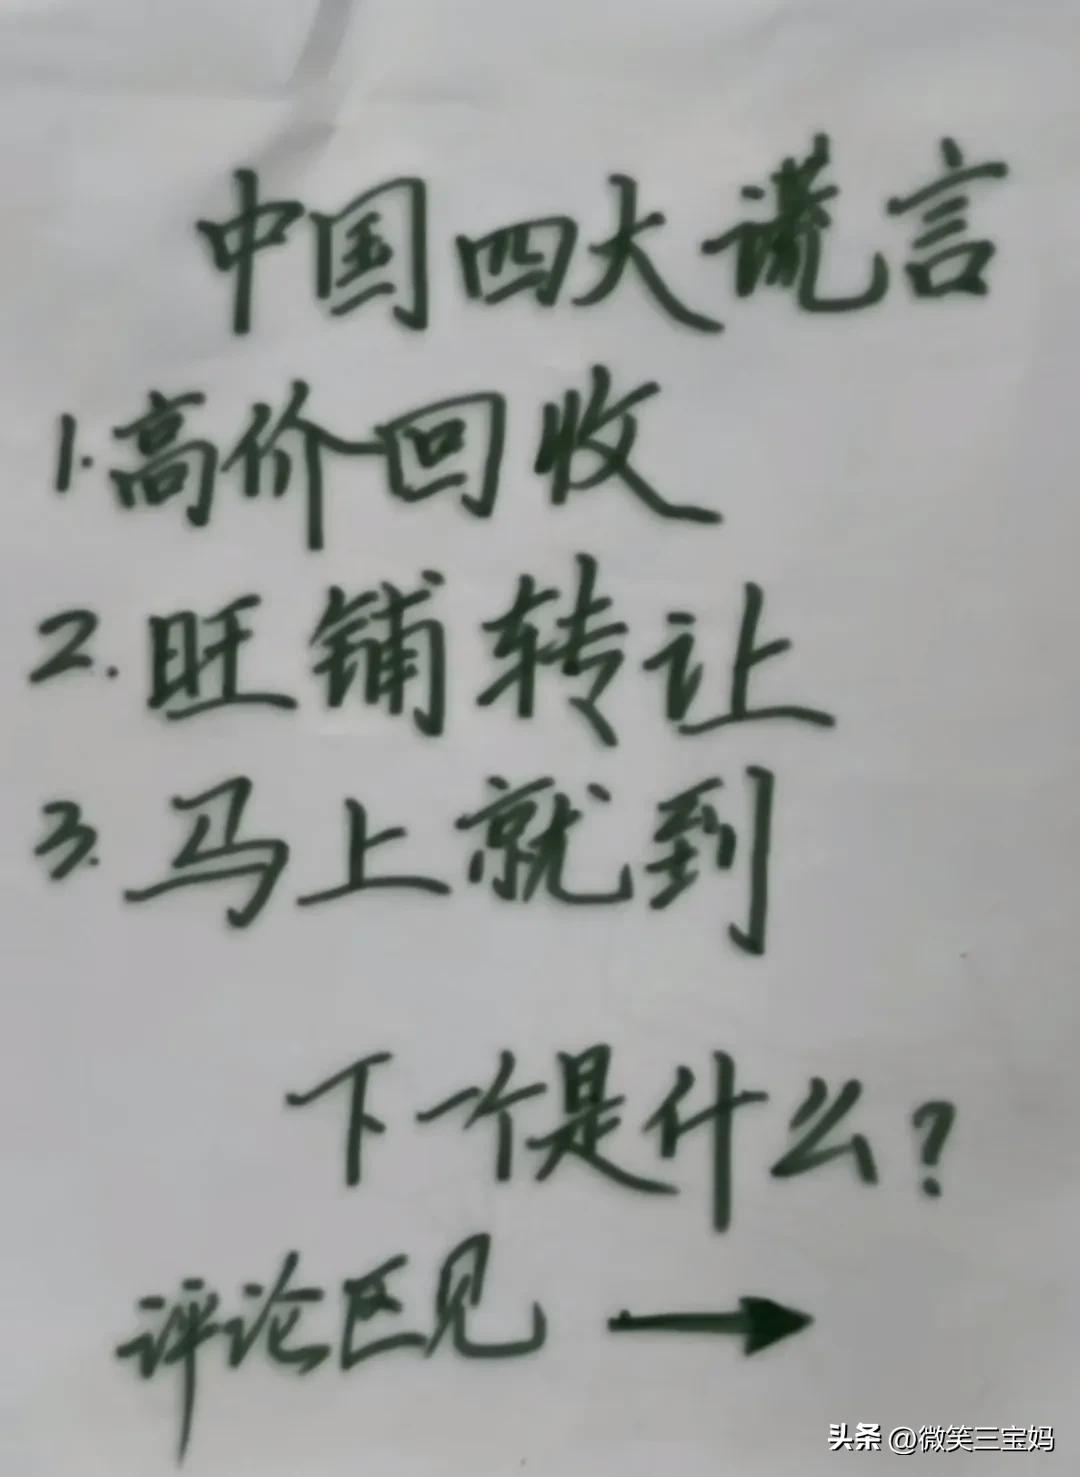 中国四大谎言
1.高价回收
2.旺铺转让
3.马上就到
下一个是什么?
评论区见→
头条@微笑三宝妈